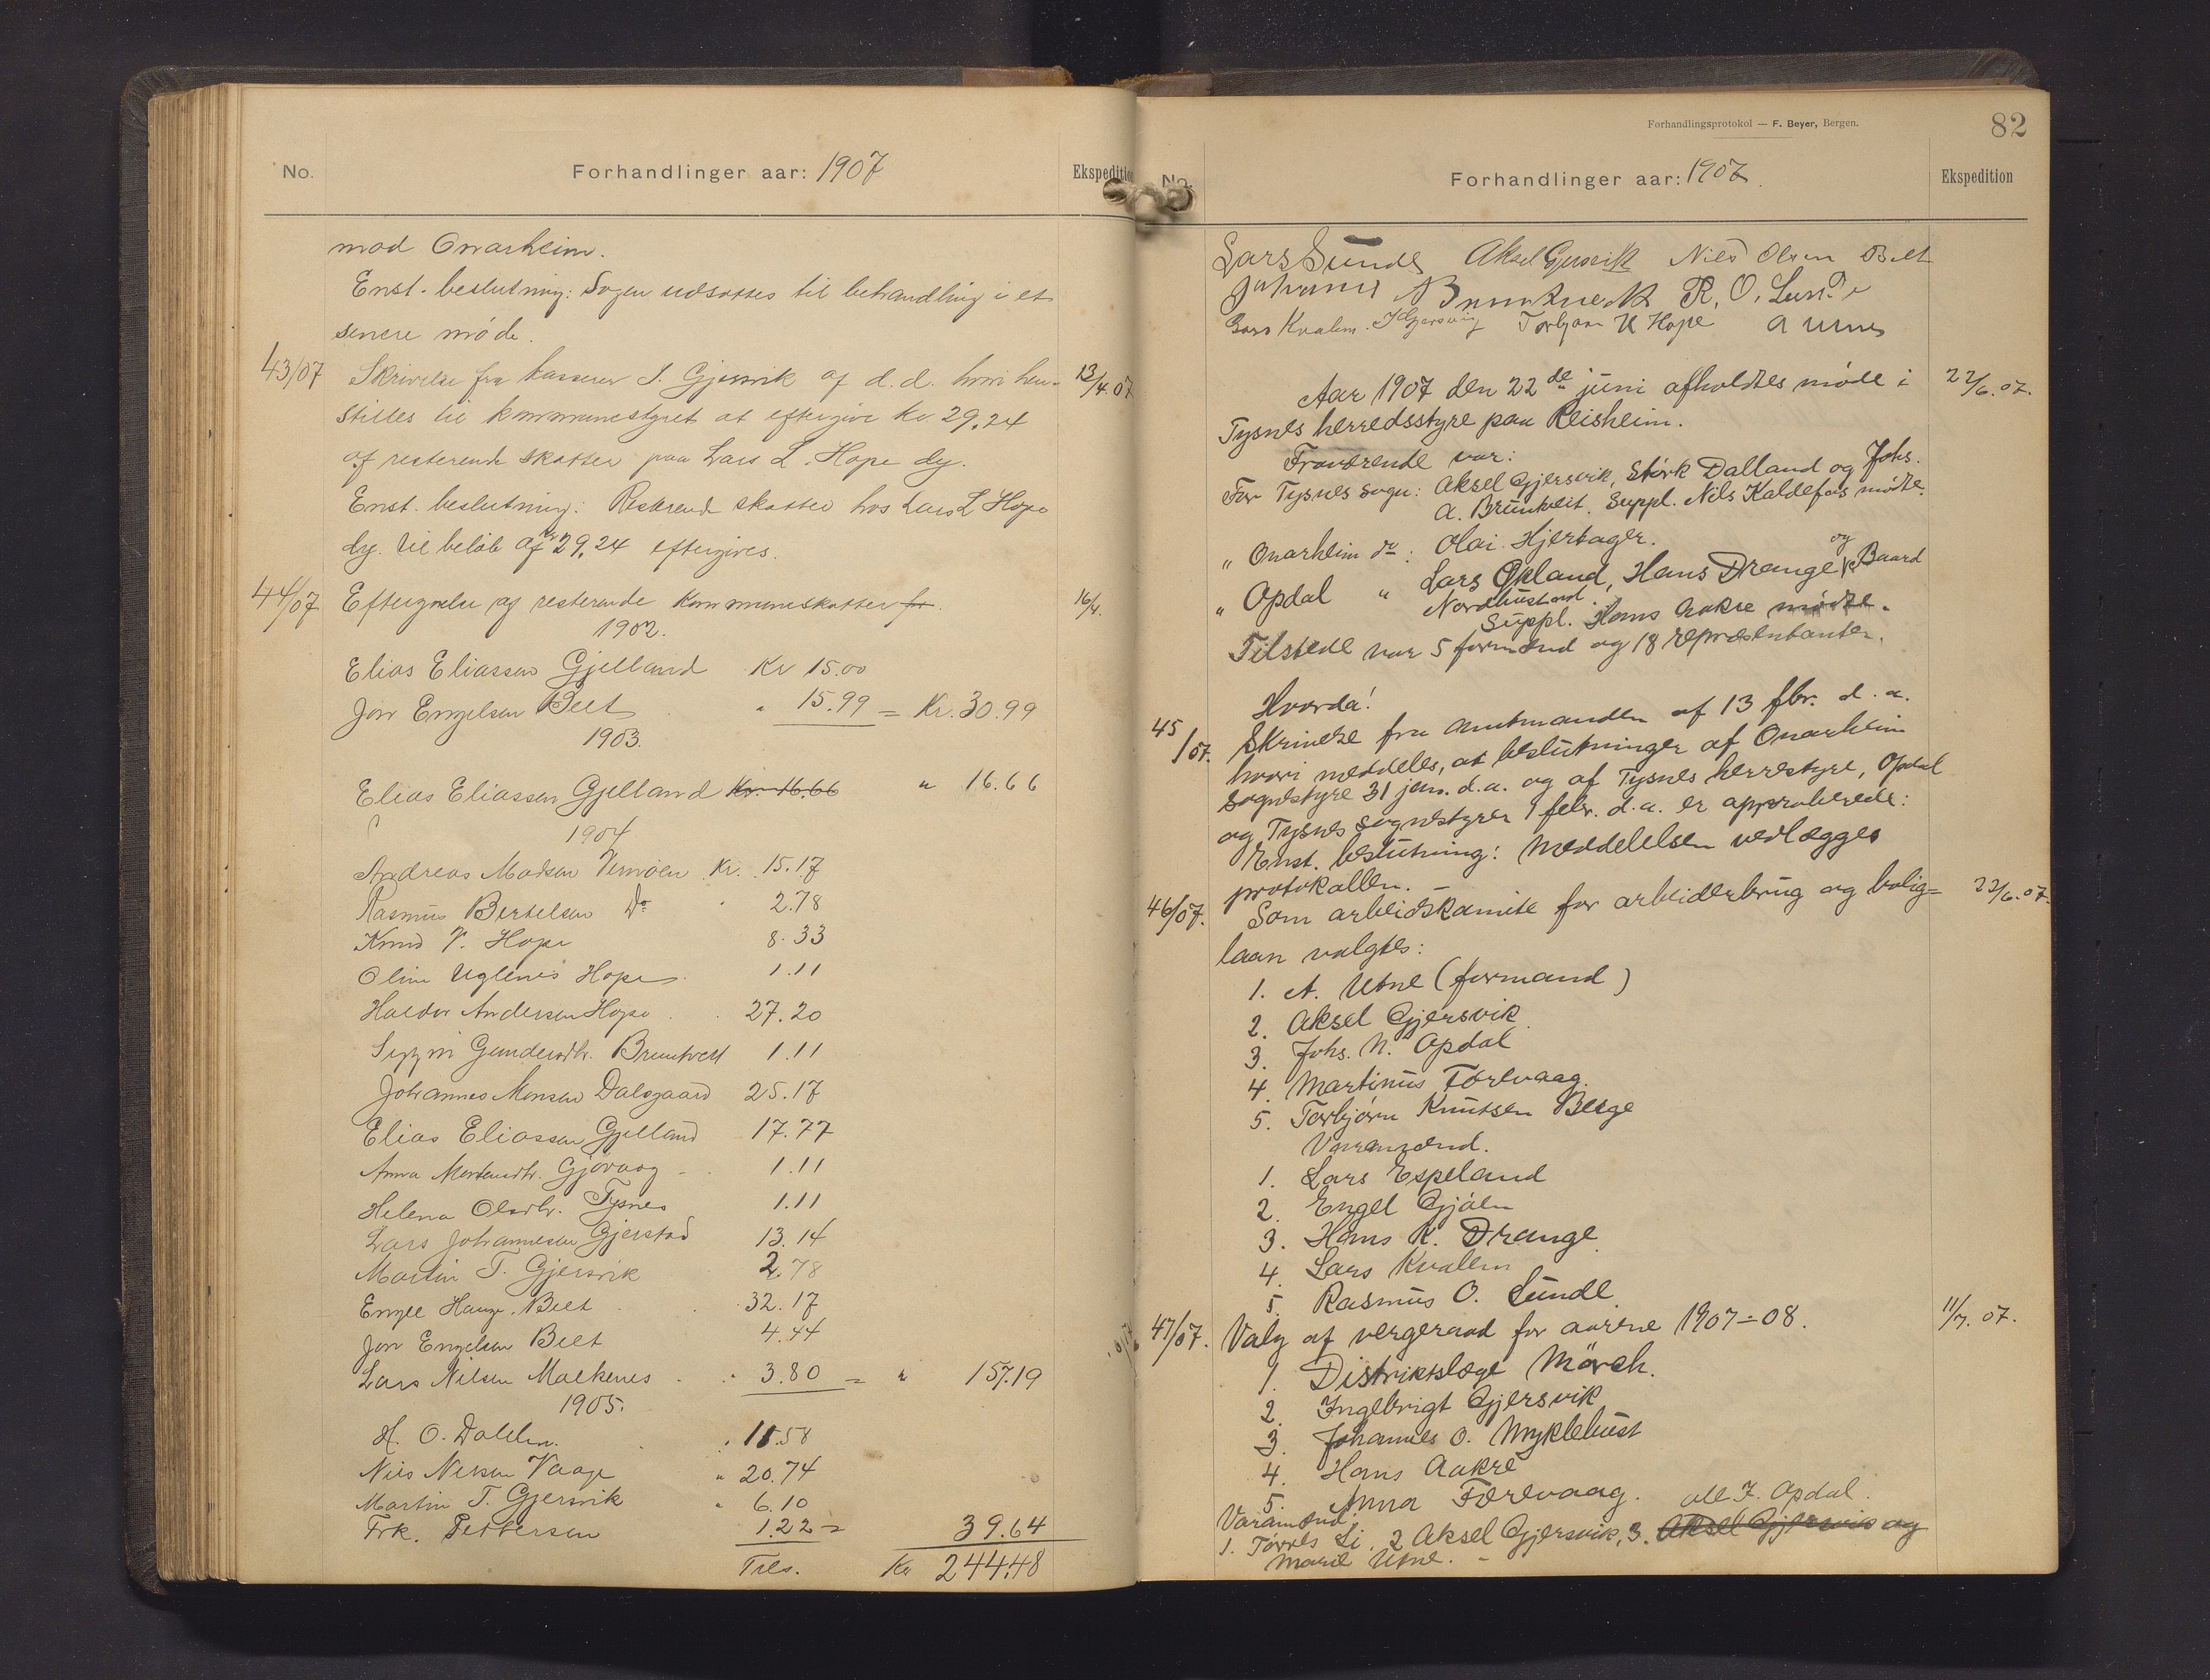 No. Forhandlinger aar: 1907 Ekspedition
mod Onarheim.
Enst. beslutning: Sagen udsattes til behandling i et
senere møde.
43/07 Skrivelse fra kasserer I. Gjersvik af d.d. hvori hen- 13/4.07
stilles til kommunestyret at eftergive Kr. 29,24
af resterende skatter paa Lars L. Hope dg.
Enst. beslutning: Resterende skatter hos Lars L Hope
dg. til beløb af kr 29,24 eftergives.
44/07 Eftergivelse af resterende kommuneskatter for. 16/4.
1902.
Elias Eliassen Gjelland Kr 15.00
Jon Engelsen Belt " 15.99 = Kr. 30.99
1903.
Elias Eliassen Gjelland Kr. 16.66 " 16.66
1904
Andreas Madsen Vernøen Kr. 15.17
Rasmus Bertelsen Do " 2.78
Knud V. Hope 8.33
Oline Uglenes Hope 1.11
Haldor Andersen Hope 27.20
Gundersdtr. Bruntveit 1.11
Johannes Monsen Dalsgaard 25.17
Elias Eliassen Gjelland 17.77
Anna Mortensdtr. Gjøvaag 1.11
Helena Olsdtr. Tysnes 1.11
Lars Johannesen Gjerstad 13.14
Martin T. Gjersvik 2.78
Engel Hauge. Belt 32.17
Jon Engelsen Belt 4.44
Lars Nilsen Malkenes " 3.80 = " 157.19
1905.
H. O. Dalen. 11.58
Nils Nilsen Vaage " 20.74
Martin T. Gjersvik " 6.10
Frk. Pettersen 1.22 = 39.64
Tils. Kr 244.48
Forhandlingsprotokol — F. Beyer, Bergen. 82
No. Forhandlinger aar: 1907. Ekspedition
Lars Sunde Aksel Gjersvik Nils Olsen Belt
Johannes Bruntveit R. O. Sunde
Lars Kvalen. I Gjersvig Torbjørn K Hope A Utne
Aar 1907 den 22de juni afholdtes møde i 22/6.07.
Tysnes herredsstyre paa Reisheim.
Fraværende var:
For Tysnes sogn: Aksel Gjersvik, Størk Dalland og Johs.
A. Bruntveit. Suppl. Nils Kaldefos mødte.
" Onarheim do: Olai Hjertager.
" Opdal " Lars Økland, Hans Drange og Baard
Nordhustad.
Suppl. Hans Aakre mødte.
Tilstede var 5 formænd og 18 repræsentanter.
Hvorda!
45/07. Skrivelse fra amtmanden af 13 fbr. d.a.
hvori meddeles, at beslutninger af Onarheim
sognestyre 31 jan. d.a. og af Tysnes herrestyre, Opdal
og Tysnes sognestyrer 1 febr. d.a. er approberede:
Enst. beslutning: Meddelelsen vedlægges
protokollen. –
46/07. Som arbeidskomite for arbeiderbrug og bolig= 22/6.07.
laan valgtes:
1. A. Utne (formand)
2. Aksel Gjersvik.
3. Johs. N. Opdal
4. Martinus Færevaag.
5. Torbjørn Knutsen Beige
Varamænd.
1. Lars Espeland
2. Engel Gjøen
3. Hans K. Drange.
4. Lars Kvalen
5. Rasmus O. Sunde.
47/07. Valg af vergeraad for aarene 1907=08. 11/7.07.
1. Distriktslæge Mørch.
2. Ingebrigt Gjersvik
3. Johannes O. Myklebust
4. Hans Aakre
5. Anna Færevaag. J. Opdal.
Varamænd.
1. Tørres Li. 2 Aksel Gjersvik, 3. Aksel Gjersvik og
Marie Utne. –